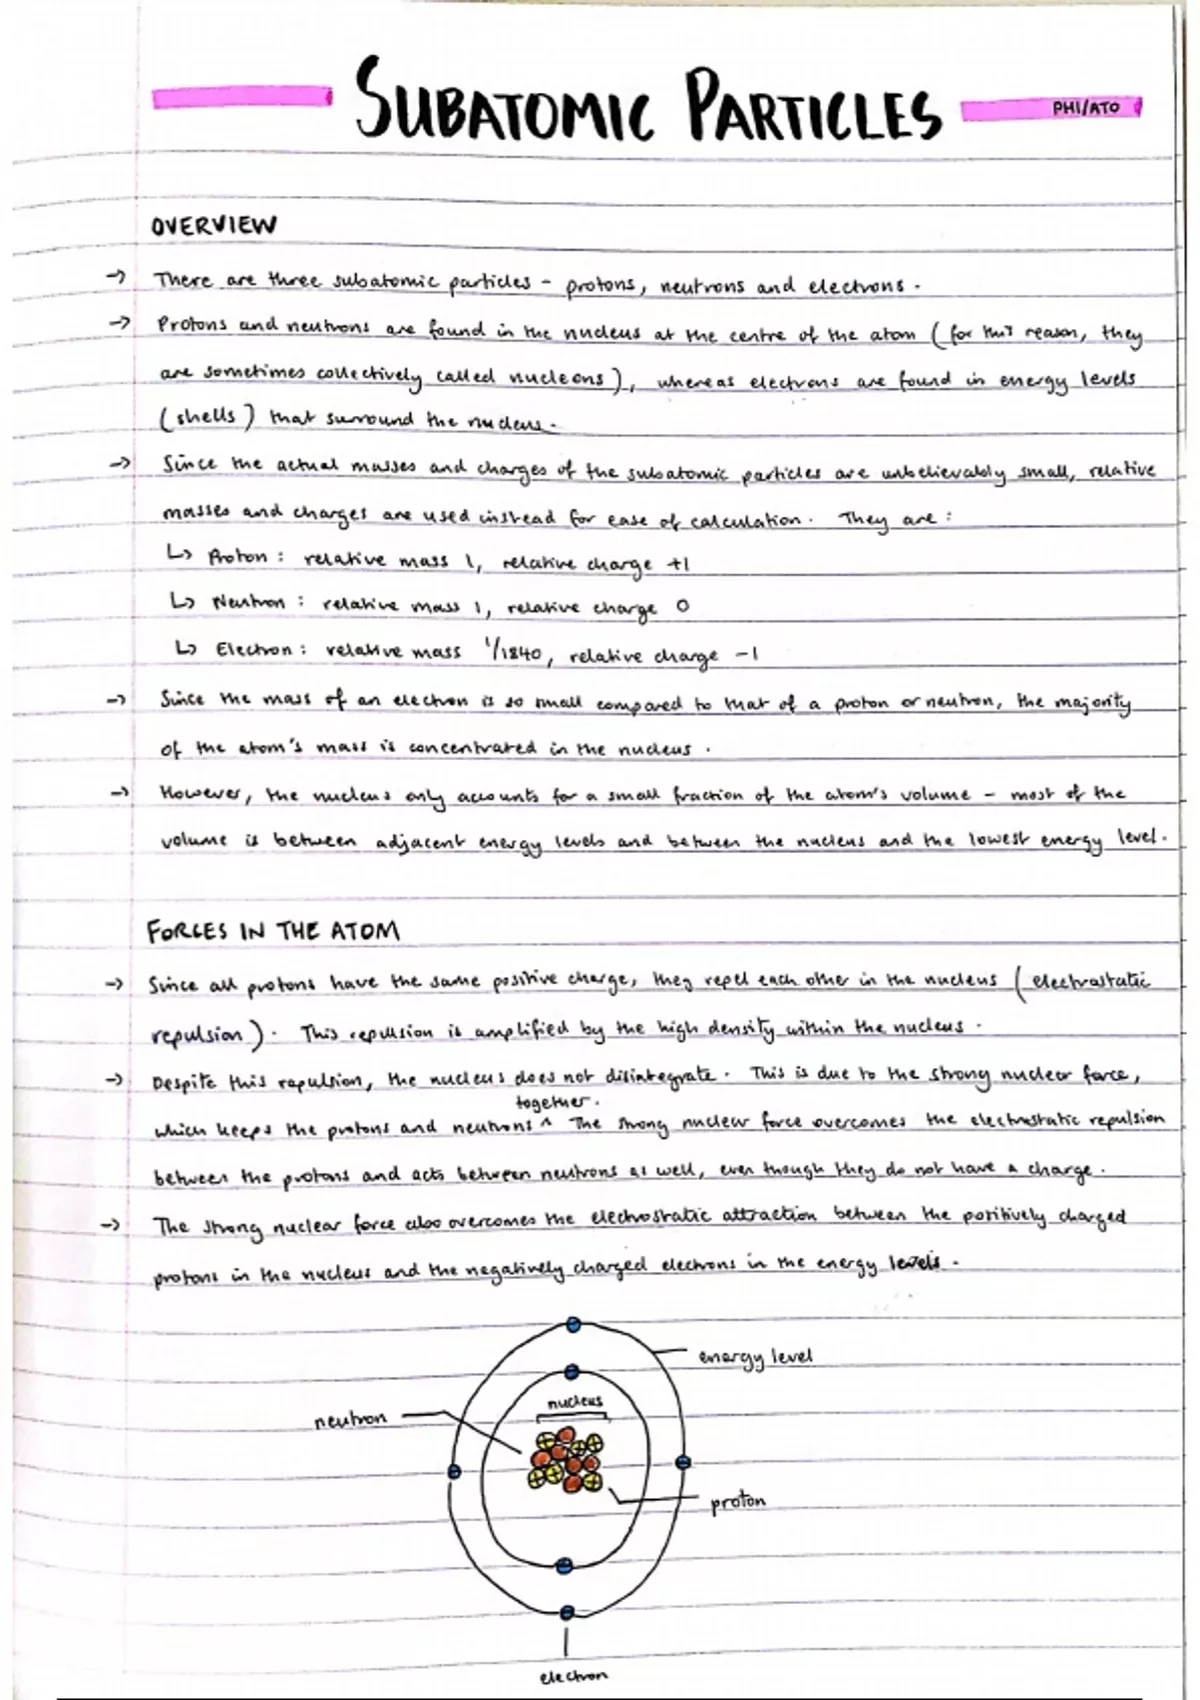 SUBATOMIC PARTICLES
PHI/ATO
OVERVIEW
→ There are three subatomic particles - protons, neutrons and electrons.
→ Protons and neutrons are found in the nucleus at the centre of the atom (for this reason, they
are sometimes collectively called nucleons), whereas electrons are found in energy levels
(shells) that surround the nucleus.
→ Since the actual masses and charges of the subatomic particles are unbelievably small, relative
masses and charges are used instead for ease of calculation. They are:
↳ Proton: relative mass 1, relative charge +1
↳ Neutron: relative mass 1, relative charge 0
↳ Electron: relative mass 1/1840, relative charge -1
→ Since the mass of an electron is so small compared to that of a proton or neutron, the majority
of the atom's mass is concentrated in the nucleus.
→ However, the nucleus only accounts for a small fraction of the atom's volume - most of the
volume is between adjacent energy levels and between the nucleus and the lowest energy level.
FORCES IN THE ATOM
→ Since all protons have the same positive charge, they repel each other in the nucleus (electrostatic
repulsion). This repulsion is amplified by the high density within the nucleus.
→ Despite this repulsion, the nucleus does not disintegrate. This is due to the strong nuclear force,
together.
which keeps the protons and neutrons ^ The strong nuclear force overcomes the electrostatic repulsion
between the protons and acts between neutrons as well, even though they do not have a charge.
→ The strong nuclear force also overcomes the electrostatic attraction between the positively charged
protons in the nucleus and the negatively charged electrons in the energy levels.
energy level
nucleus
neutron
proton
electron